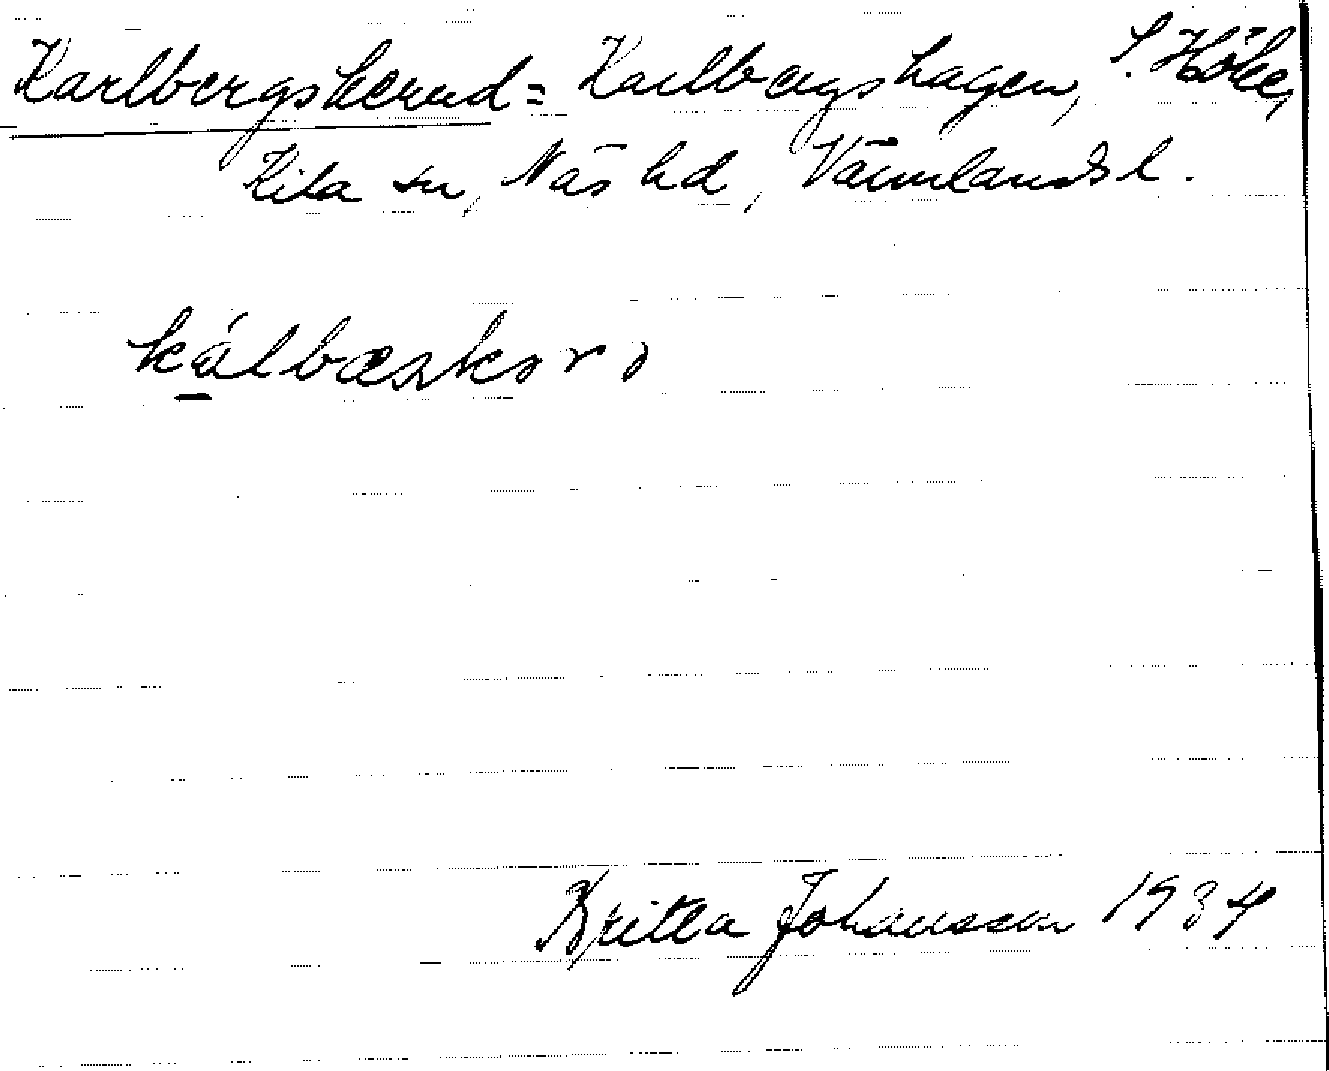 Karlbergskerud = Karlbergshagen, S. Höke,
Kila sn, Näs hd, Värmlands l.
kálbæsks r
Britta Johansson 1934